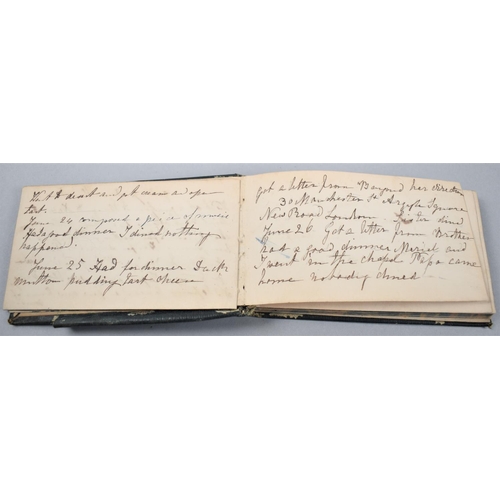 and
tart.
June 24 composed a piece of music
good dinner I dined nothing
happened.
June 25 Had for dinner Ducks
mutton pudding Tart Cheese
got a letter from her direction
30 Manchester St Argyle Square
New Road London
June 26 Got a letter from Brother
eat a good dinner and
I went in the chapel Papa came
home nobody dined